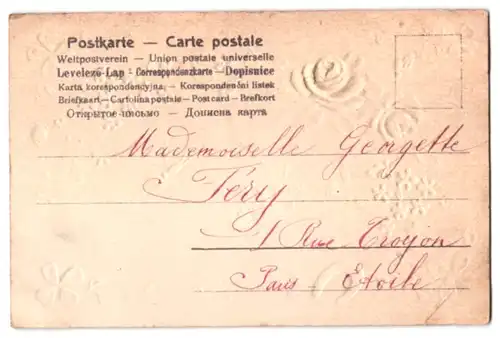 Postkarte — Carte postale
Weltpostverein — Union postale universelle
Levelező-Lap — Correspondenzkarte — Dopisnice
Karta korespondencyjna — Korespondenčni listek
Briefkaart — Cartolina postale — Post card — Brefkort
Открытое письмо — Дописна карта
Mademoiselle Georgette
Féry
1 Rue Troyon
Paris - Etoile